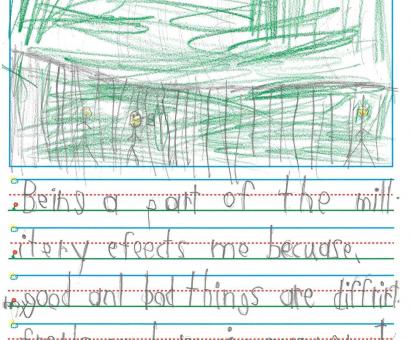 Being a part of the mill-
itery efeects me becuase,
my good and bad things are diffrint